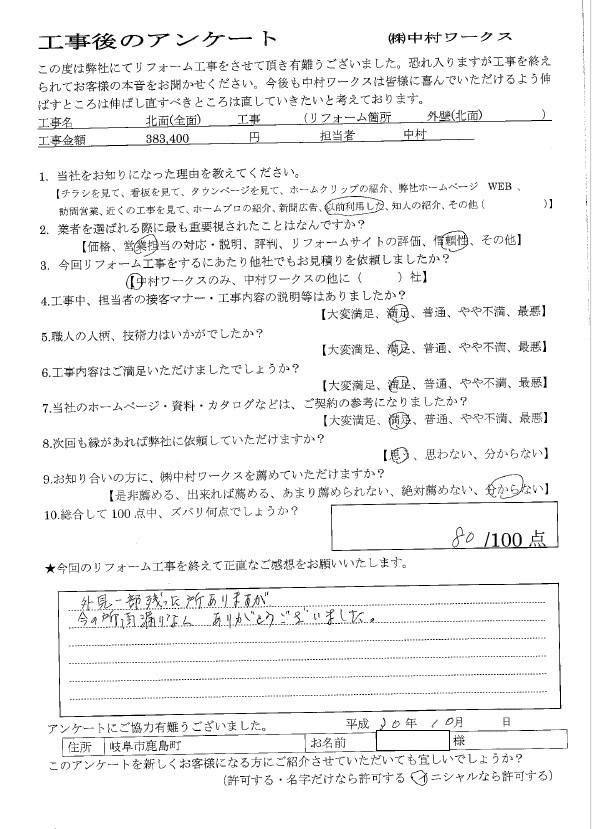 工事後のアンケート ㈱中村ワークス
この度は弊社にてリフォーム工事をさせて頂き有難うございました。恐れ入りますが工事を終え
られてお客様の本音をお聞かせください。今後も中村ワークスは皆様に喜んでいただけるよう伸
ばすところは伸ばし直すべきところは直していきたいと考えております。
工事名 北面(全面) 工事 (リフォーム箇所 外壁(北面) )
工事金額 383,400 円 担当者 中村
1. 当社をお知りになった理由を教えてください。
【チラシを見て、看板を見て、タウンページを見て、ホームクリップの紹介、弊社ホームページ WEB 、
訪問営業、近くの工事を見て、ホームプロの紹介、新聞広告、以前利用した、知人の紹介、その他( )】
2. 業者を選ばれる際に最も重要視されたことはなんですか?
【価格、営業担当の対応・説明、評判、リフォームサイトの評価、信頼性、その他】
3. 今回リフォーム工事をするにあたり他社でもお見積りを依頼しましたか?
【中村ワークスのみ、中村ワークスの他に ( ) 社】
4.工事中、担当者の接客マナー・工事内容の説明等はありましたか?
【大変満足、満足、普通、やや不満、最悪】
5.職人の人柄、技術力はいかがでしたか?
【大変満足、満足、普通、やや不満、最悪】
6.工事内容はご満足いただけましたでしょうか?
【大変満足、満足、普通、やや不満、最悪】
7.当社のホームページ・資料・カタログなどは、ご契約の参考になりましたか?
【大変満足、満足、普通、やや不満、最悪】
8.次回も縁があれば弊社に依頼していただけますか?
【思う、思わない、分からない】
9.お知り合いの方に、㈱中村ワークスを薦めていただけますか?
【是非薦める、出来れば薦める、あまり薦められない、絶対薦めない、分からない】
10.総合して 100 点中、ズバリ何点でしょうか?
80 /100 点
★今回のリフォーム工事を終えて正直なご感想をお願いいたします。
外見一部残った所ありますが
今の所雨漏りなん ありがとうございました。
アンケートにご協力有難うございました。 平成 30年 10月 日
住所 岐阜市鹿島町 お名前 様
このアンケートを新しくお客様になる方にご紹介させていただいても宜しいでしょうか?
(許可する・名字だけなら許可する・イニシャルなら許可する)